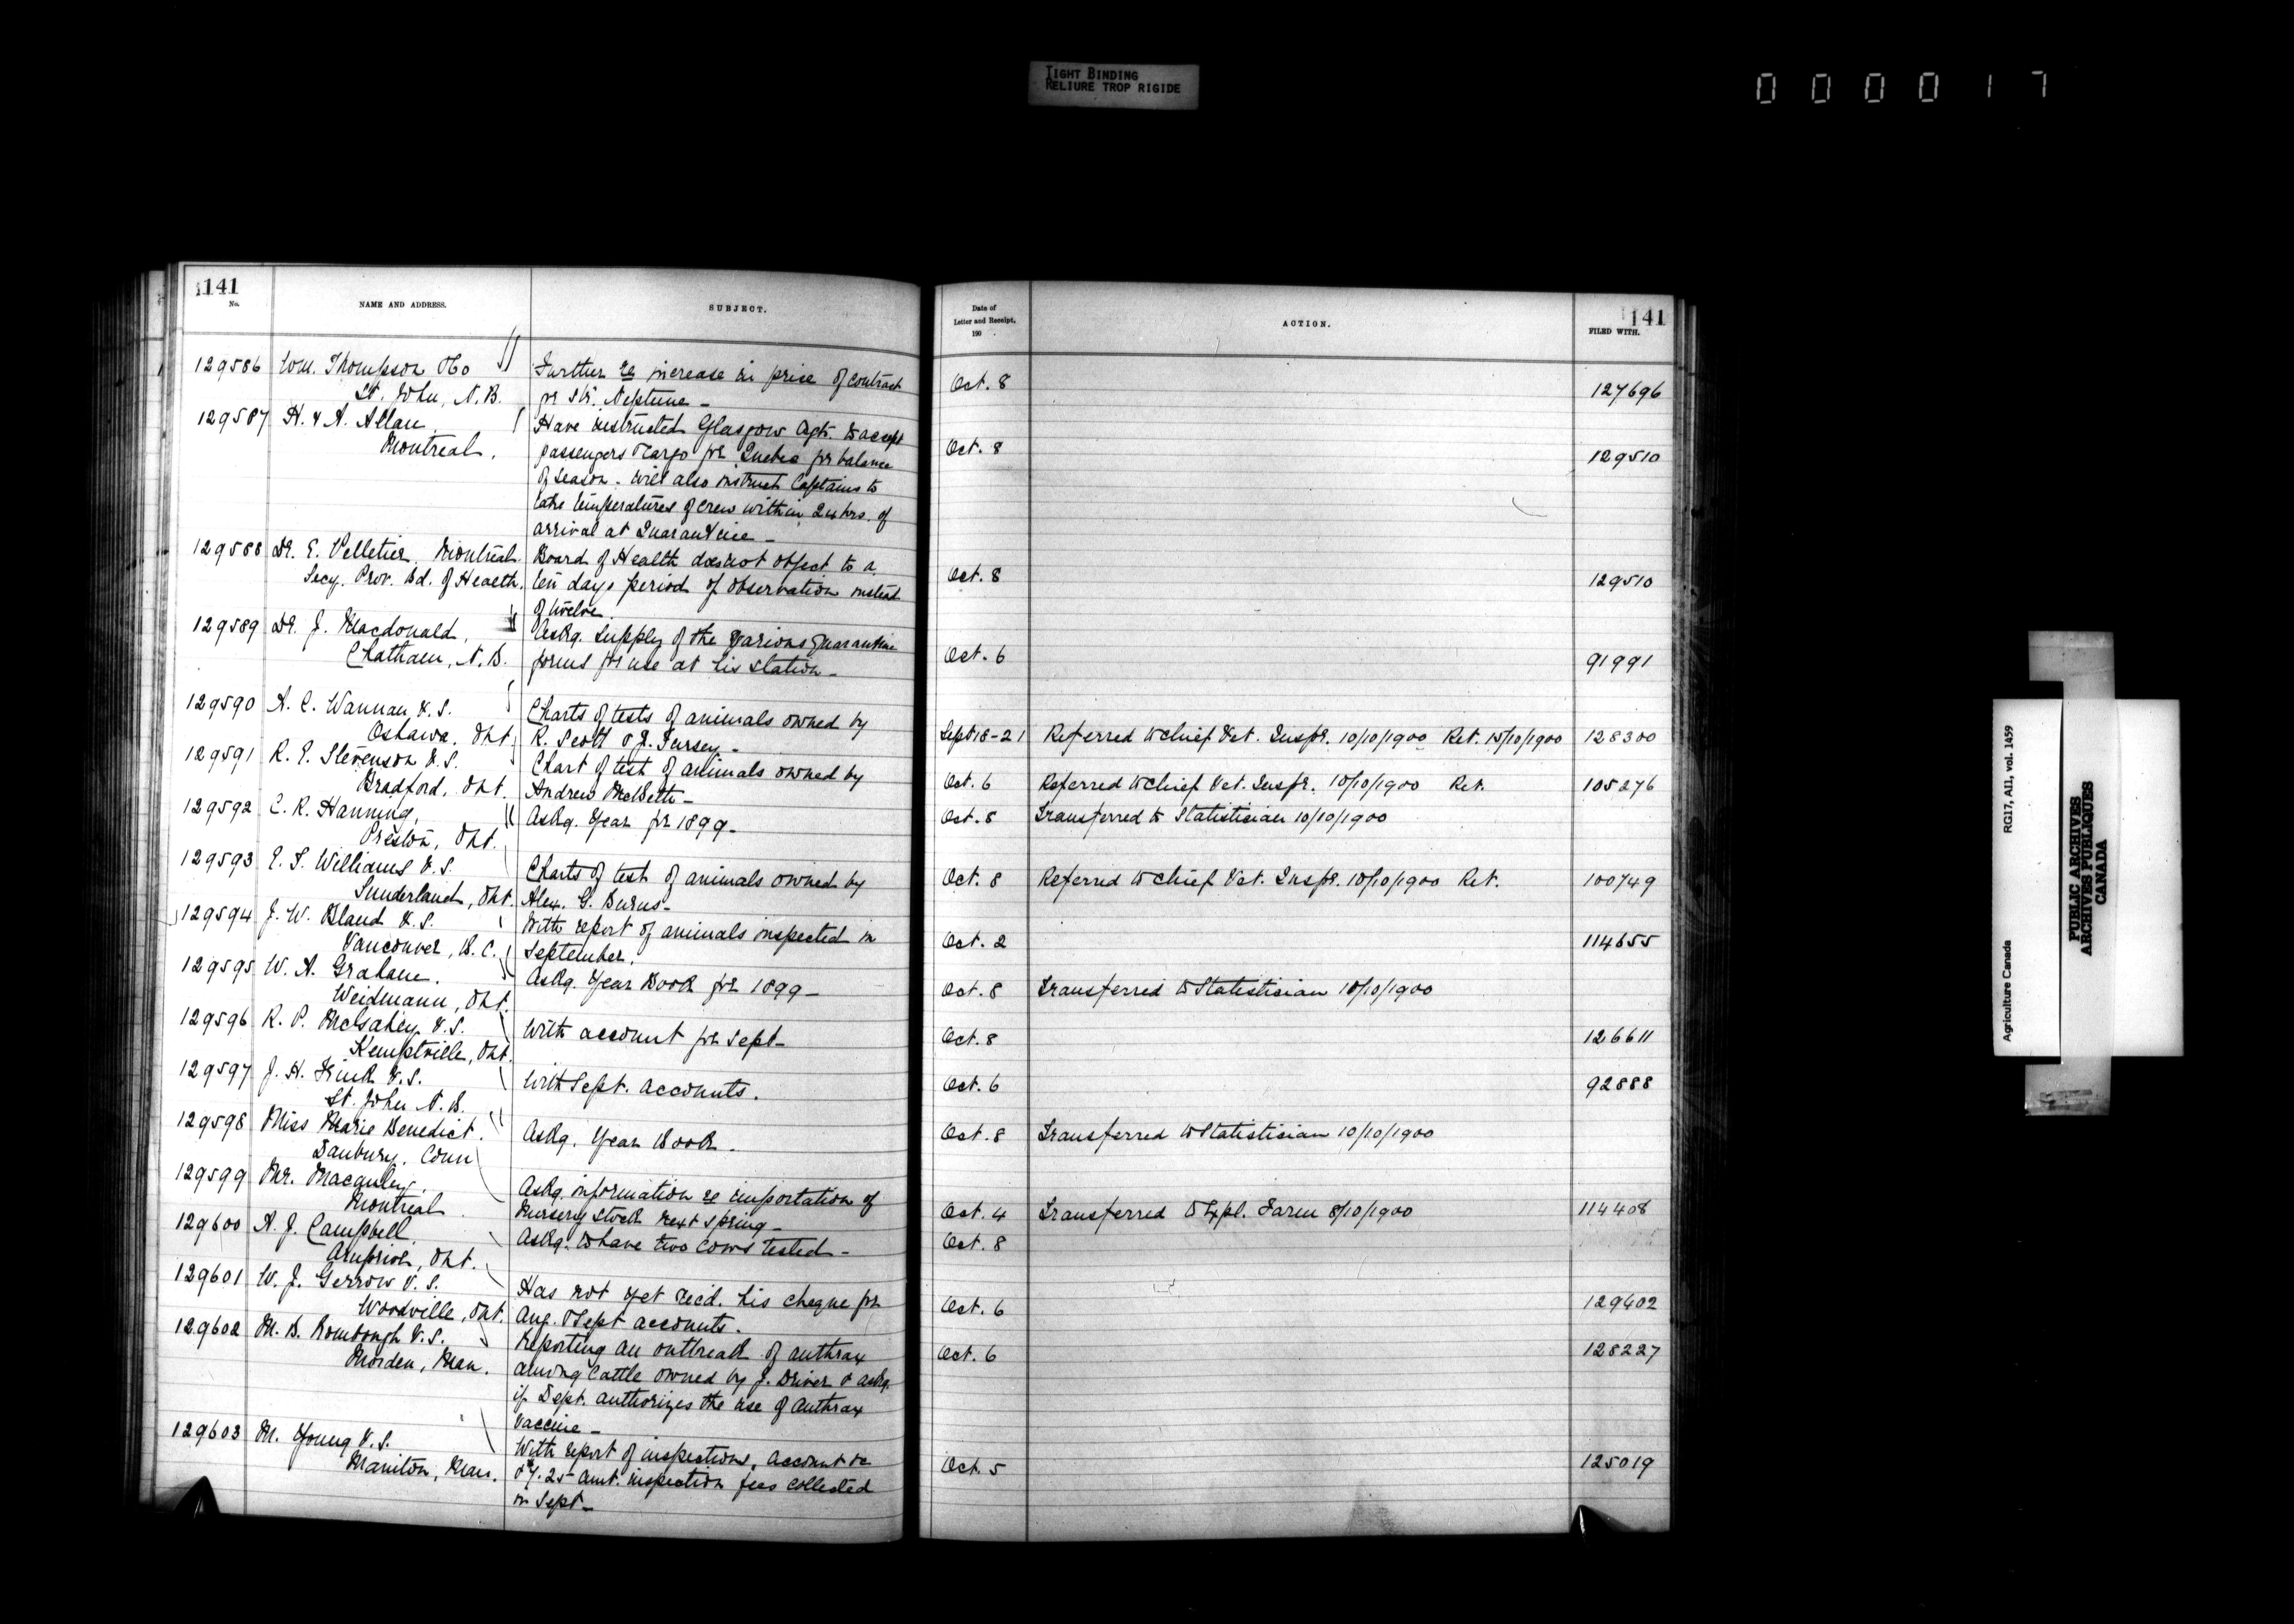 TIGHT BINDING
RELIURE TROP RIGIDE
000017
141
No.
NAME AND ADDRESS.
SUBJECT.
129586 Wm. Thompson & Co
St. John, N.B.
Further re increase in price of contract
for SS. Neptune -
129587 H. & A. Allan
Montreal.
Have instructed Glasgow Agts. to accept
passengers & cargo for Quebec for balance
of season - will also instruct Captains to
take temperatures of crew within 24 hrs. of
arrival at Quarantine -
129588 Dr. E. Pelletier, Montreal
Secy. Prov. Bd. of Health.
Board of Health does not object to a
ten days period of observation instead
of twelve.
129589 Dr. J. Macdonald,
Chatham, N.B.
Askg. supply of the various Quarantine
forms for use at his station -
129590 A. C. Wannan V.S.
Oshawa, Ont.
Charts of tests of animals owned by
R. Scott & J. Fursey -
129591 R. E. Stevenson V.S.
Bradford, Ont.
Chart of test of animals owned by
Andrew McBeth -
129592 C. R. Hanning,
Preston, Ont.
Askg. Year for 1899 -
129593 E. S. Williams V.S.
Sunderland, Ont.
Charts of test of animals owned by
Alex. G. Burns -
129594 J. W. Bland V.S.
Vancouver, B.C.
With report of animals inspected in
September.
129595 W. A. Graham.
Weidmann, Ont.
Askg. Year Book for 1899 -
129596 R. P. McGahey V.S.
Kemptville, Ont.
With account for Sept -
129597 J. H. Frink V.S.
St. John N.B.
With Sept. accounts.
129598 Miss Marie Benedict.
Danbury, Conn
Askg. Year Book.
129599 Mr. Macauley.
Montreal
Askg. information re importation of
Nursery Stock next Spring -
129600 A. J. Campbell.
Arnprior, Ont.
Askg. to have two cows tested -
129601 W. J. Gerrow V.S.
Woodville, Ont.
Has not yet recd. his cheque for
Aug. & Sept accounts.
129602 M. B. Rombough V.S.
Morden, Man.
Reporting an outbreak of anthrax
among cattle owned by J. Driver & askg.
if Dept. authorizes the use of Anthrax
Vaccine -
129603 M. Young V.S.
Manitou, Man.
With report of inspections, account &c
& 7.25 amt. inspection fees collected
in Sept -
Date of
Letter and Receipt,
190
ACTION.
141
FILED WITH.
Oct. 8 127696
Oct. 8 129510
Oct. 8 129510
Oct. 6 91991
Sept 18-21 Referred to Chief Vet. Inspr. 10/10/1900 Ret. 15/10/1900 128300
Oct. 6 Referred to Chief Vet. Inspr. 10/10/1900 Ret. 105276
Oct. 8 Transferred to Statistician 10/10/1900
Oct. 8 Referred to Chief Vet. Inspr. 10/10/1900 Ret. 100749
Oct. 2 114655
Oct. 8 Transferred to Statistician 10/10/1900
Oct. 8 126611
Oct. 6 92888
Oct. 8 Transferred to Statistician 10/10/1900
Oct. 4 Transferred to Expl. Farm 8/10/1900 114408
Oct. 8
Oct. 6 129402
Oct. 6 128227
Oct. 5 125019
Agriculture Canada RG17, AII, vol. 1459
PUBLIC ARCHIVES
ARCHIVES PUBLIQUES
CANADA